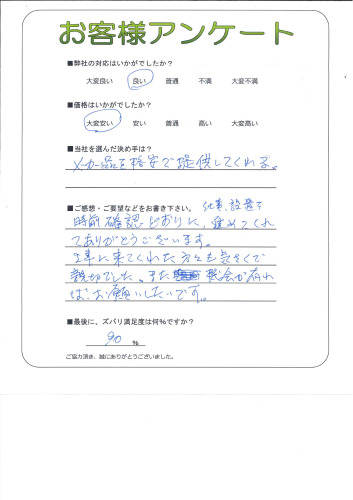 お客様アンケート
■弊社の対応はいかがでしたか？
大変良い 良い 普通 不満 大変不満
■価格はいかがでしたか？
大変安い 安い 普通 高い 大変高い
■当社を選んだ決め手は？
メーカー品を格安で提供してくれる。
■ご感想・ご要望などをお書き下さい。
仕事、設置も
事前確認どおりに、進めてくれ
てありがとうございます。
工事に来てくれた方々も気さくで
親切でした。また 機会が有れ
ば、お願いしたいです。
■最後に、ズバリ満足度は何%ですか？
90 %
ご協力頂き、誠にありがとうございました。